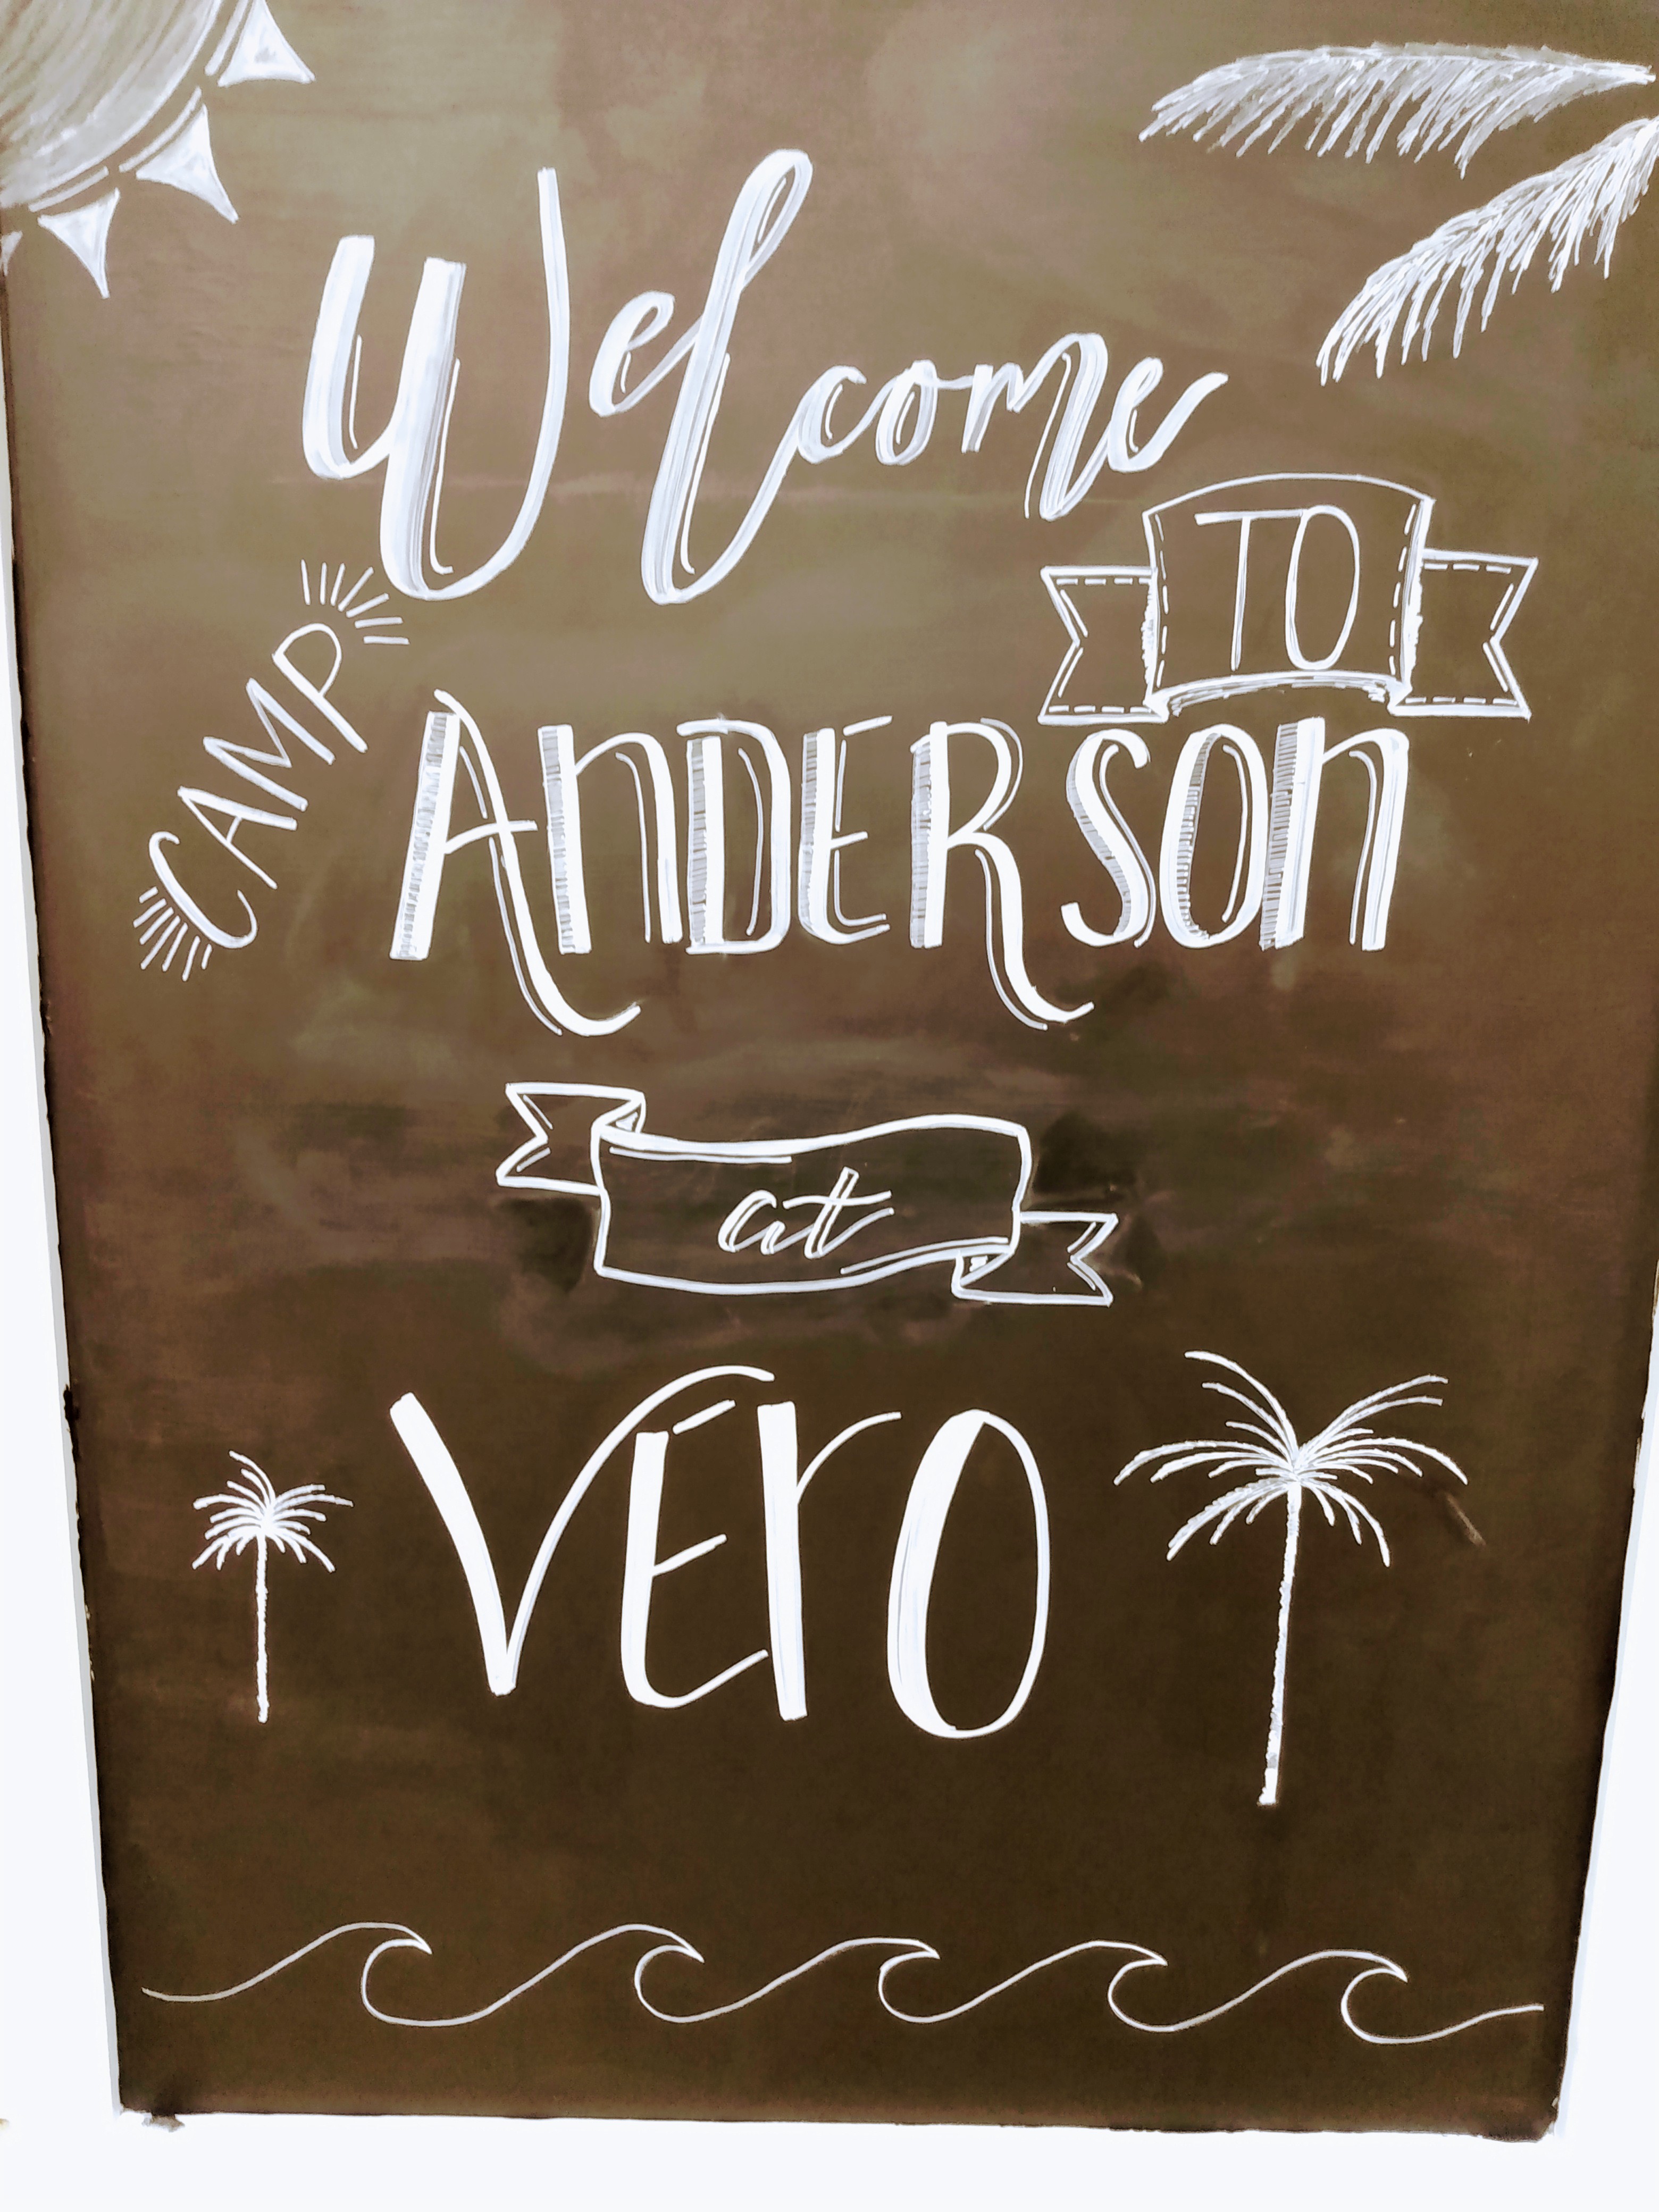 Welcome
TO
CAMP
ANDERSON
at
VEro